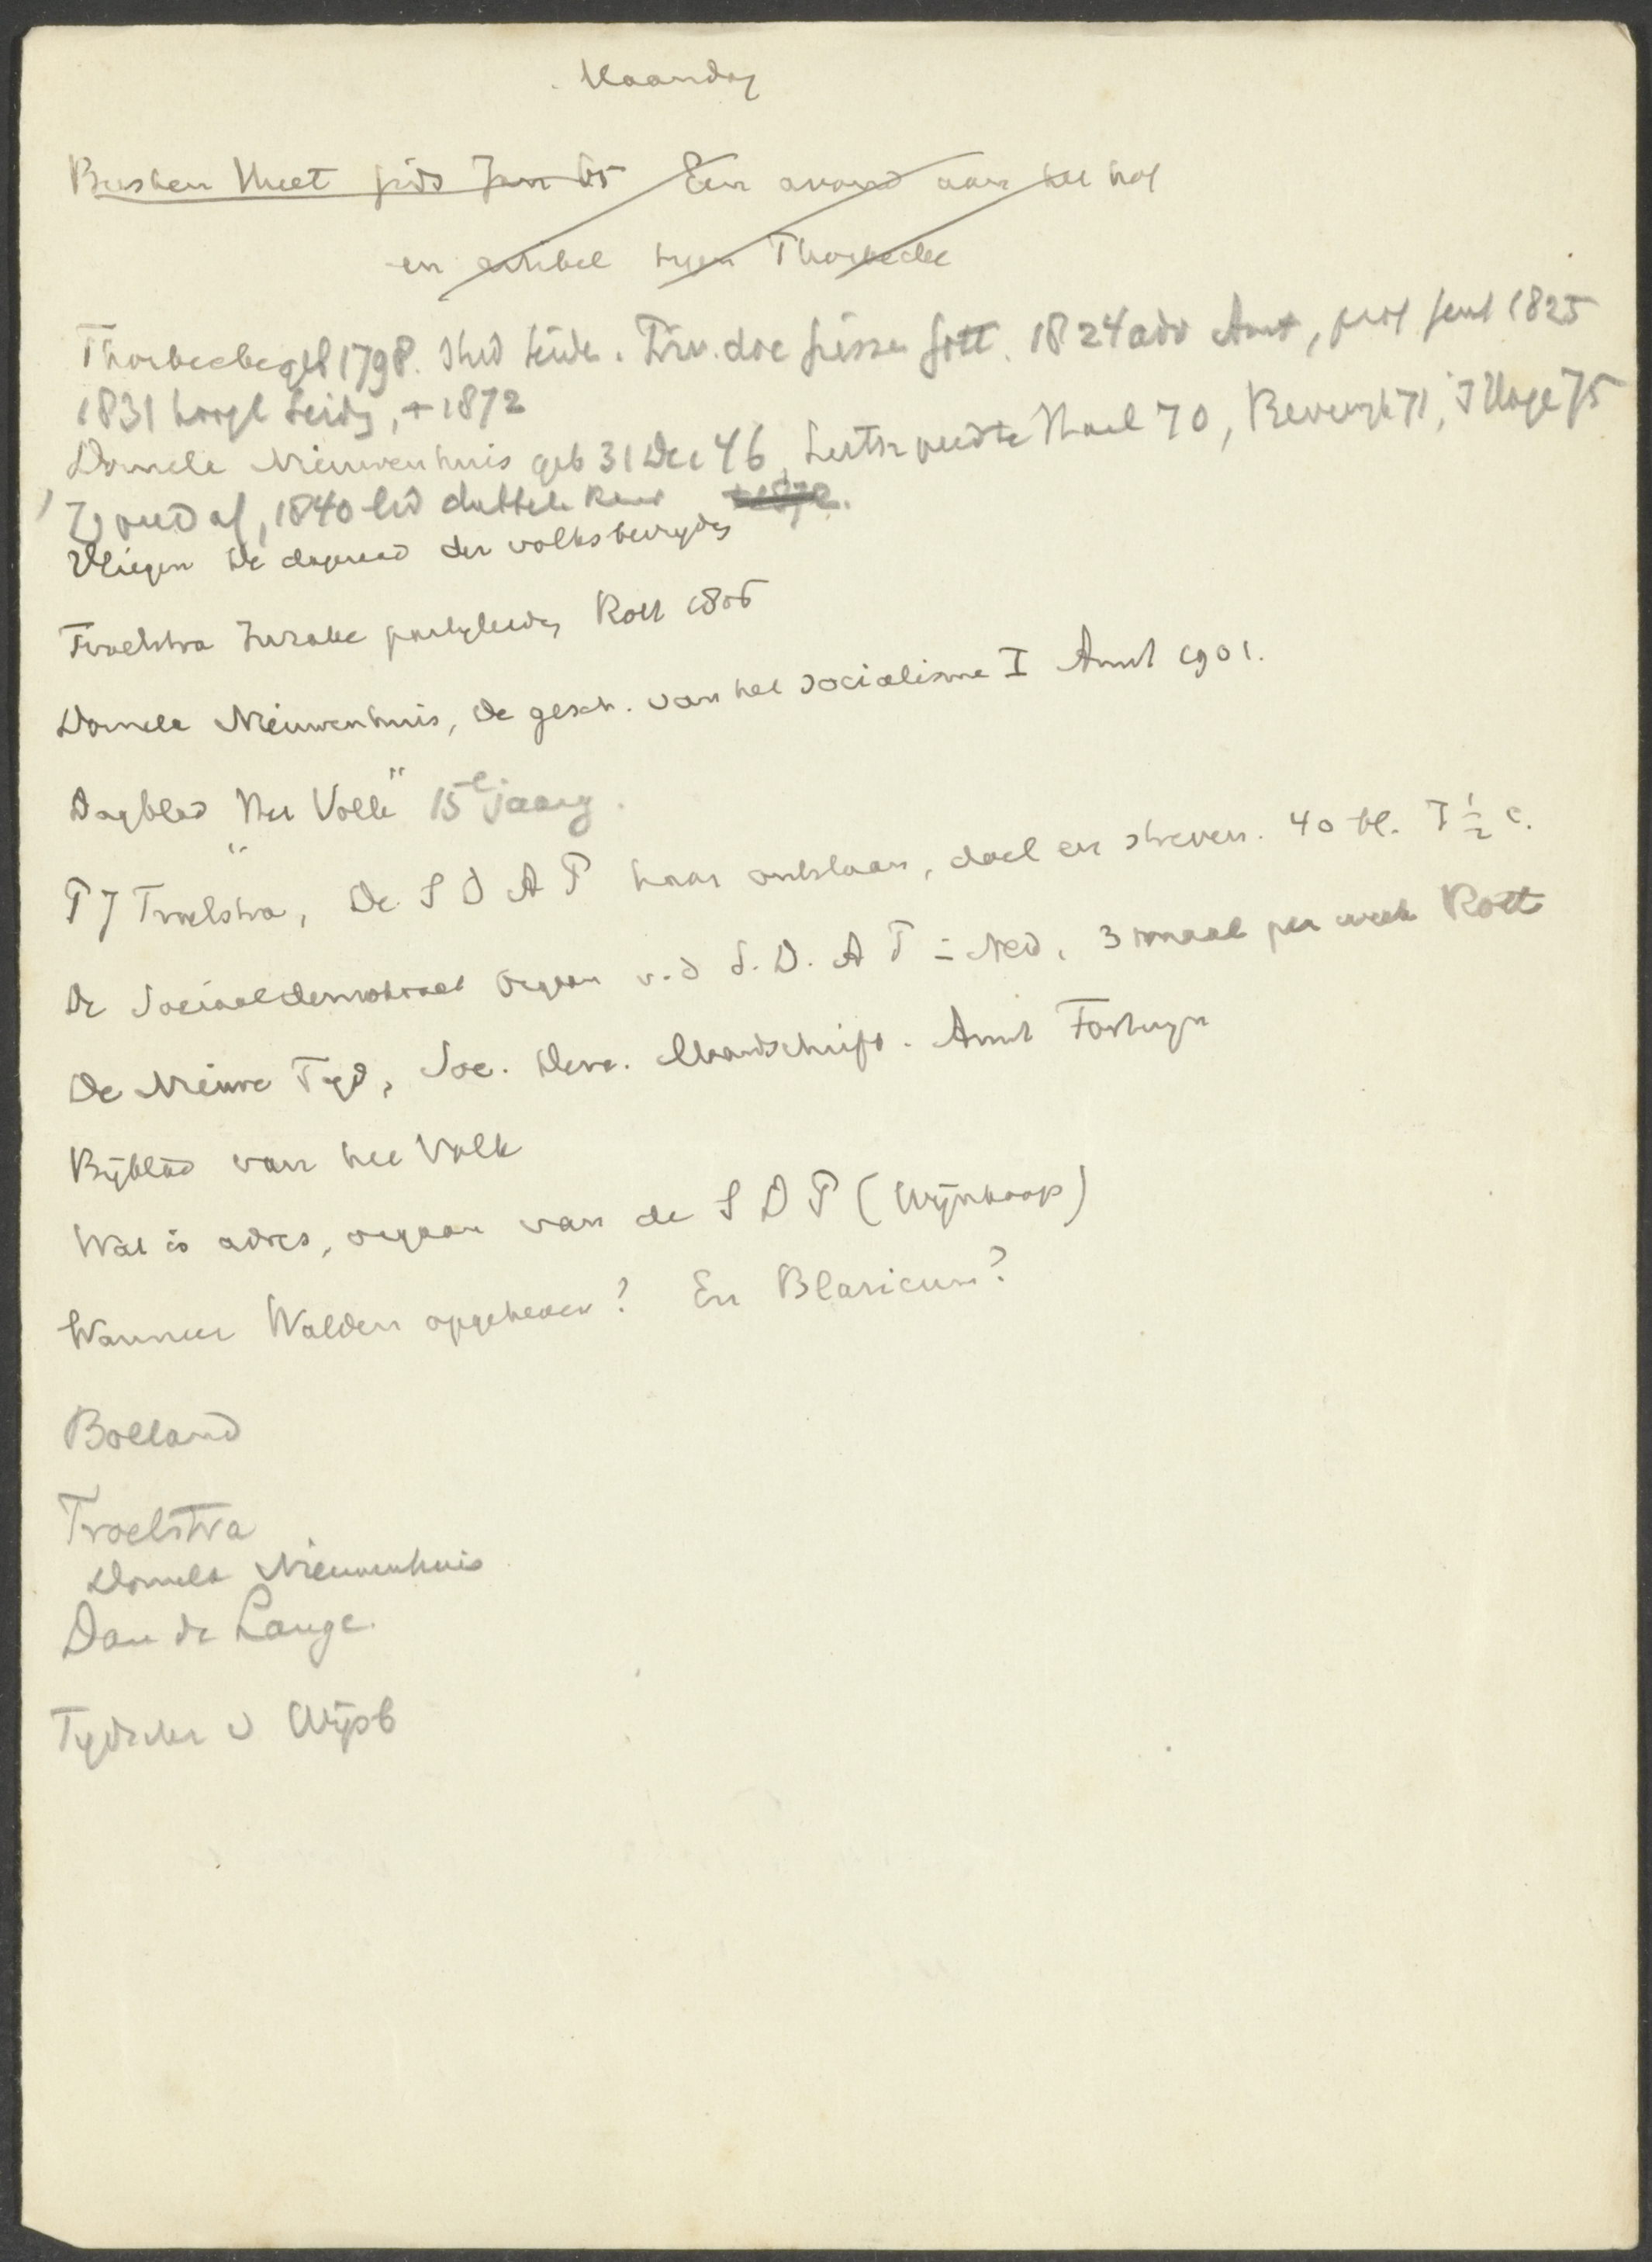 Maandag
Busken Huet gids Jan 65 Een avond aan het hof
en artikel tegen Thorbecke
Thorbecke geb 1798. Stud Leiden. Priv. doc Giessen Gött. 1824 adv Amst, prof Gent 1825
1831 hoogl Leiden, + 1872
Domela Nieuwenhuis geb 31 Dec 46, Luth 70, Beverwijk 71, 's Hage 75
1840 lid dubbele Kamer + 1872.
Vliegen De dageraad der volksbevrijding
Troelstra Inzake partijleiding Rott 1906
Domela Nieuwenhuis, De gesch. van het socialisme I Amst 1901.
Dagblad "Het Volk" 15e jaarg.
P J Troelstra, De S D A P haar ontstaan, doel en streven. 40 bl. 7 1/2 c.
De Sociaaldemokraat Orgaan v.d S. D. A P in Ned. 3 maal per week Rott
De Nieuwe Tijd, Soc. Dem. Maandschrift. Amst Fortuyn
Bijblad van het Volk
Wat is adres, orgaan van de S D P (Wijnkoop)
Wanneer Walden opgeheven? En Blaricum?
Bolland
Troelstra
Domela Nieuwenhuis
Dan de Lange.
Tijdschr v Wijsb